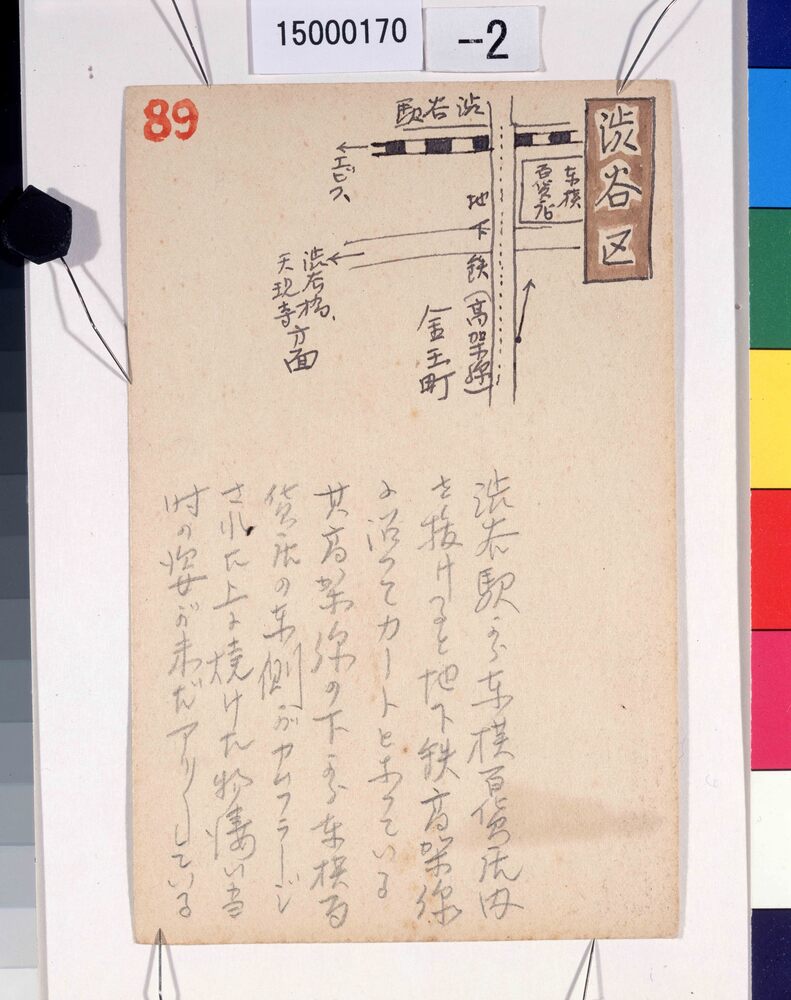 15000170
-2
89
渋谷区
渋谷駅
東横
百貨店
エビス、
地下鉄(高架線)
金王町
渋谷橋、
天現寺方面
渋谷駅から東横百貨店内
を抜けると地下鉄高架線
に沿つてカートとなつている
其高架線の下から東横百
貨店の東側がカムフラージ
された上に焼けた物凄い当
時の姿が未だアリーしている